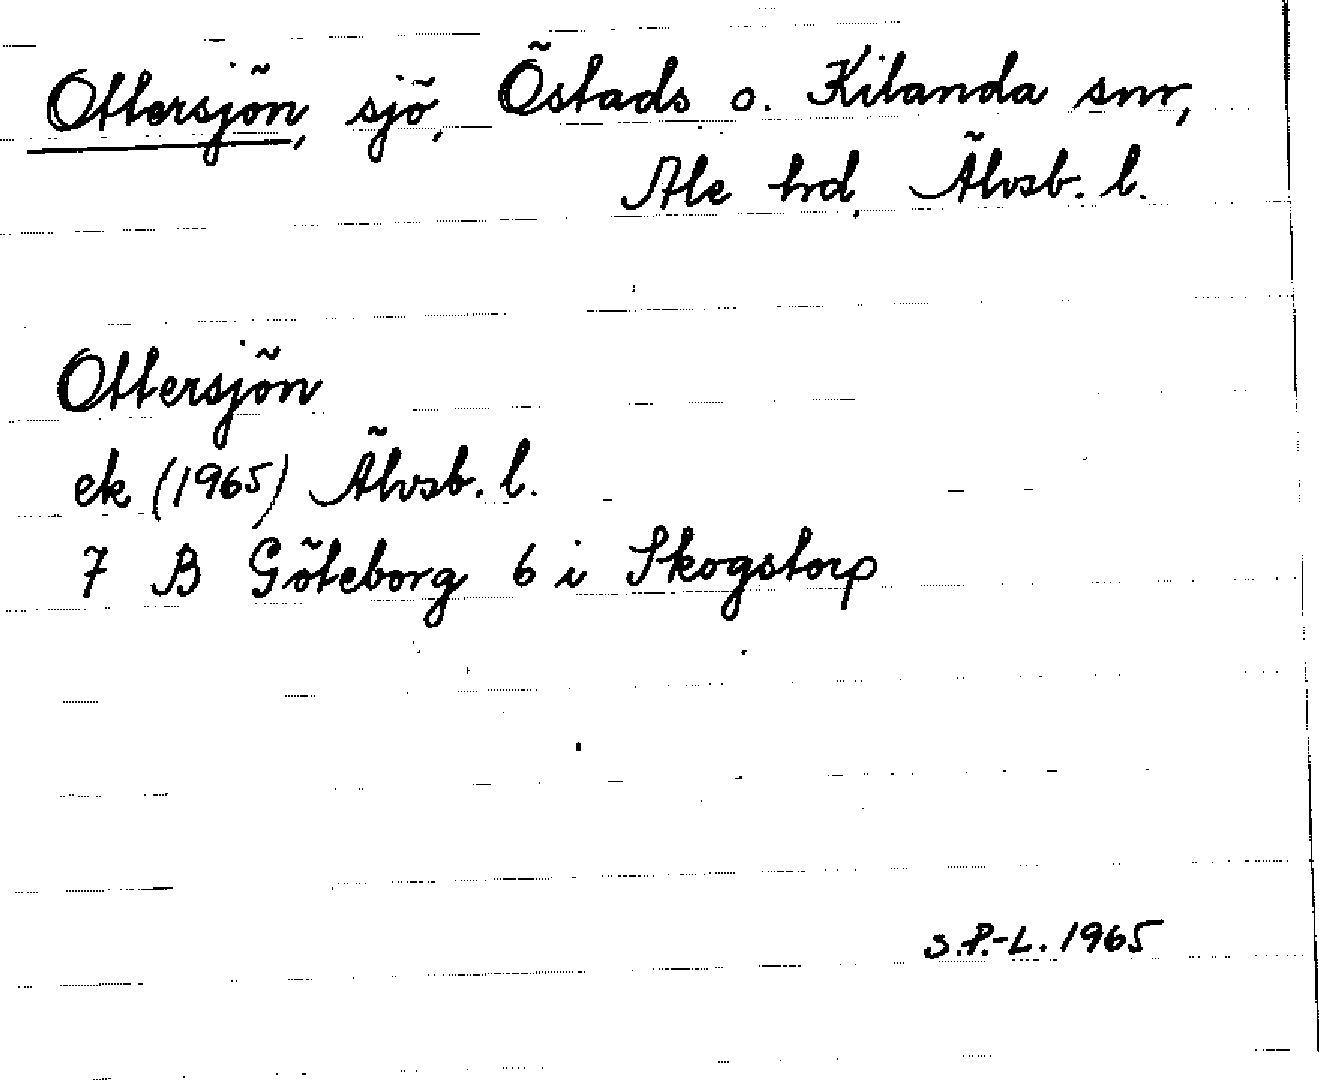 Ottersjön, sjö, Östads o. Kilanda snr,
Ale hd, Älvsb. l.
Ottersjön
ek (1965) Älvsb. l.
7 B Göteborg 6 i Skogstorp
S.P.-L. 1965